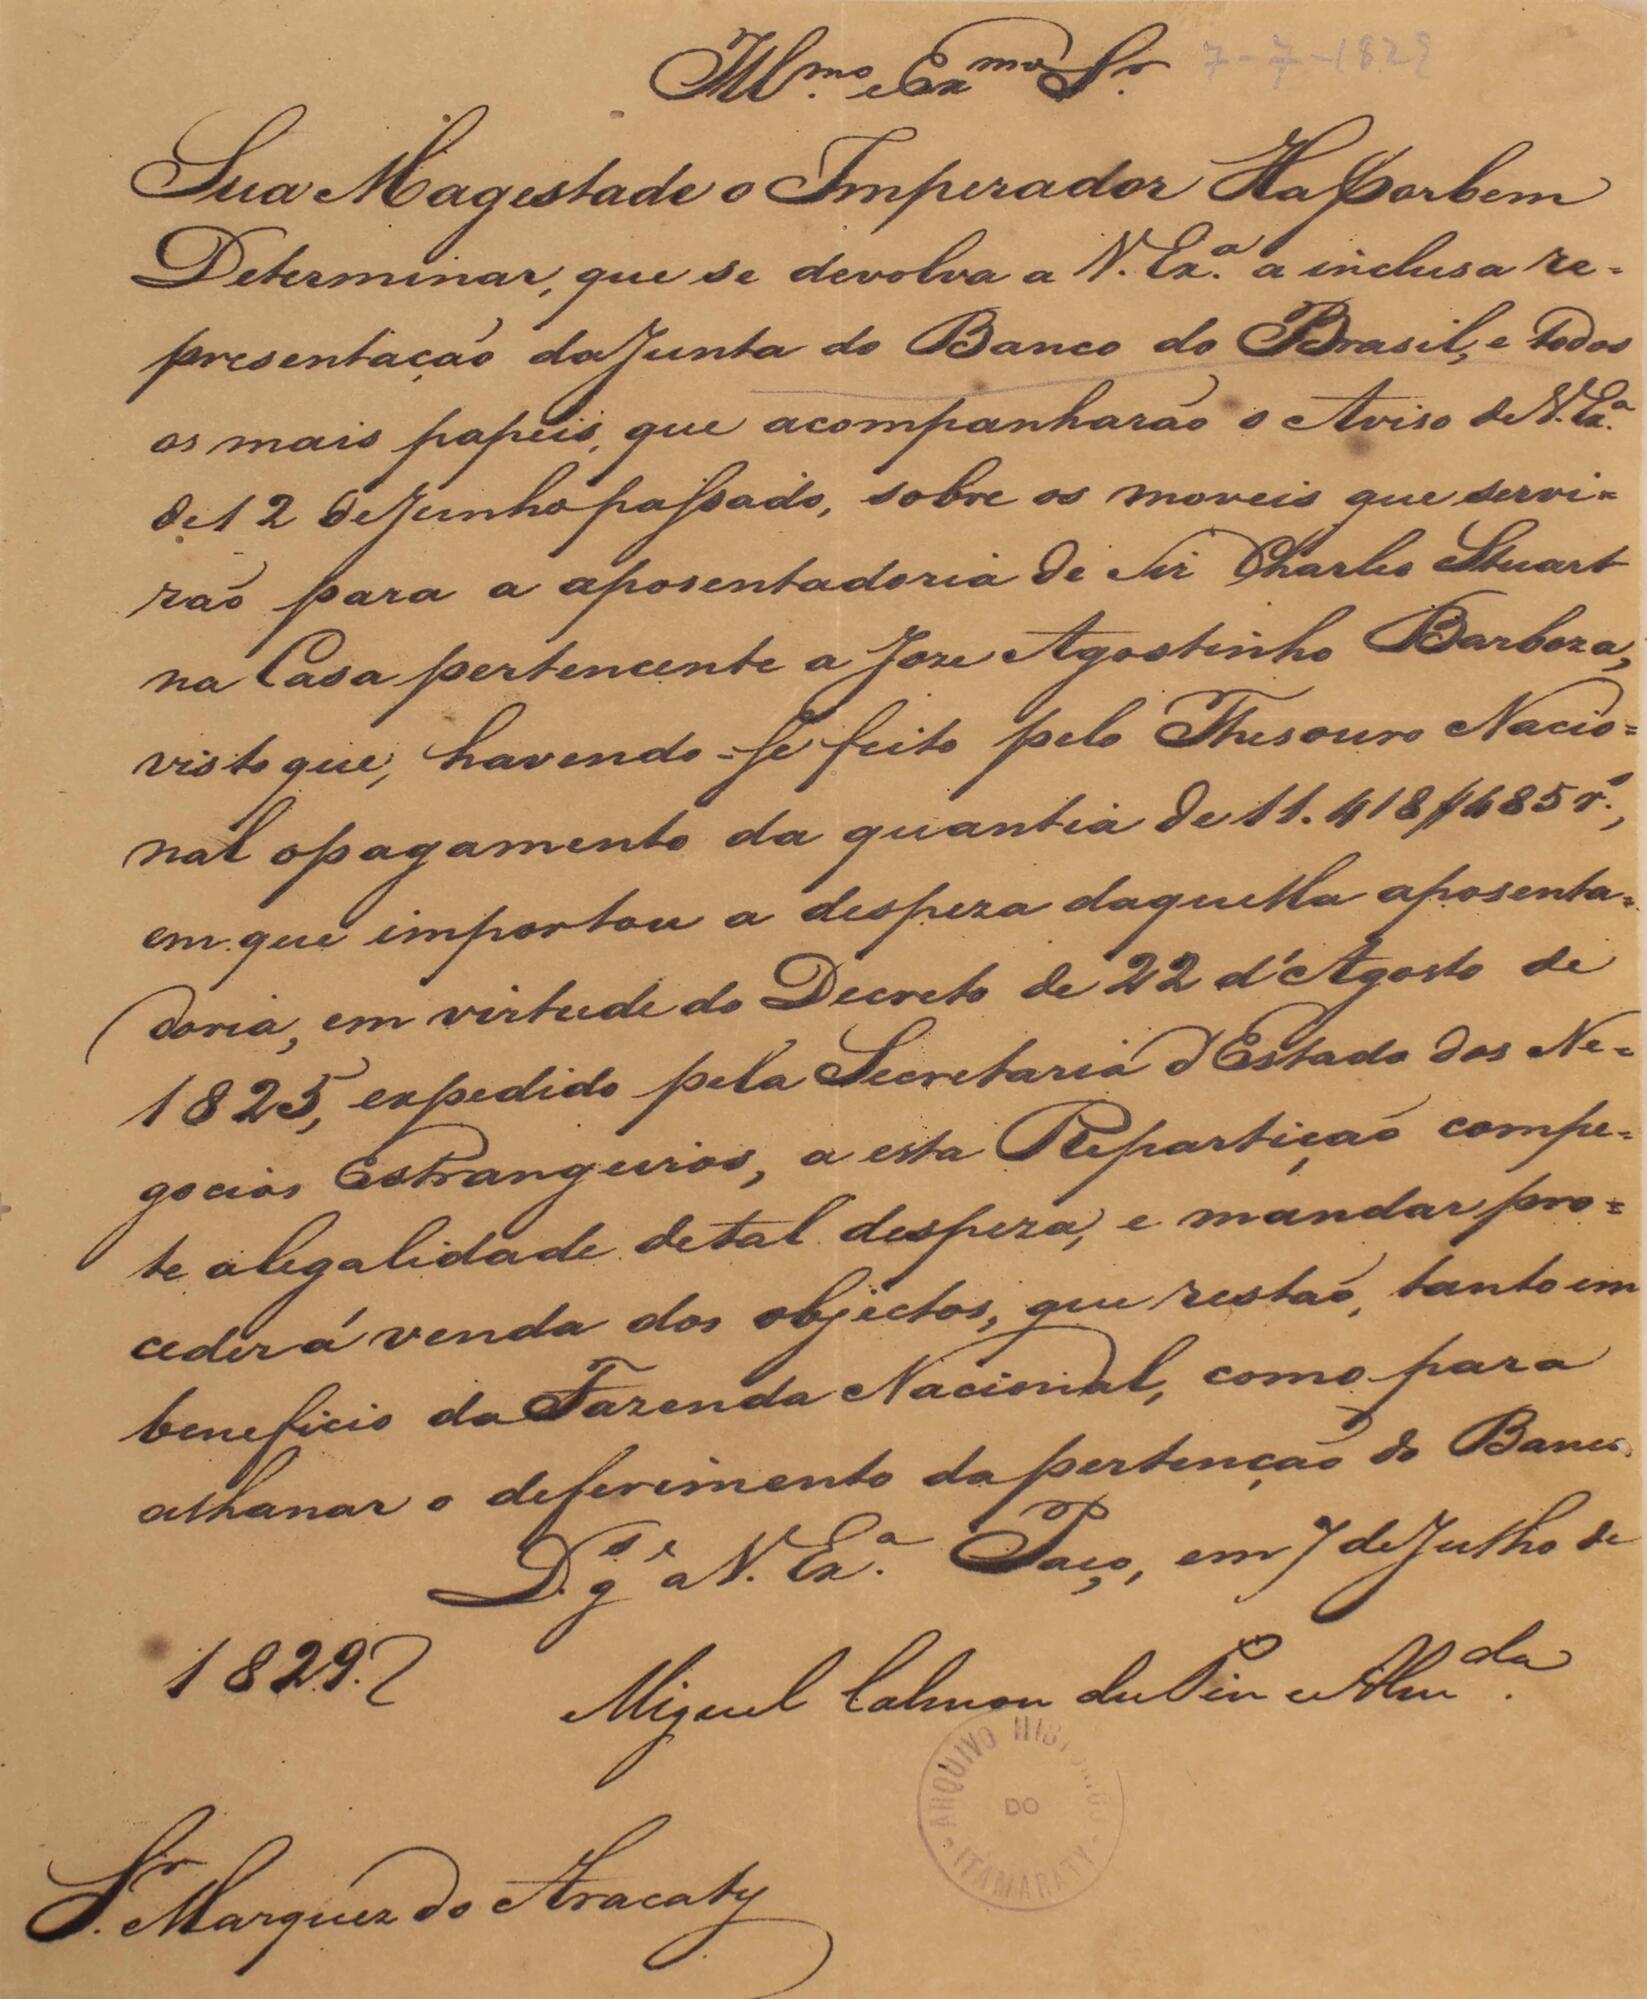 Ill.mo e Ex.mo Sr. 7-7-1829
Sua Magestade o Imperador Ha por bem
Determinar, que se devolva a V. Ex.a a inclusa re=
presentação da Junta do Banco do Brasil, e todos
os mais papeis, que acompanharão o Aviso de V. Ex.a
de 12 de Junho passado, sobre os moveis que servi=
rão para a aposentadoria de Sir Charles Stuart
na Casa pertencente a Joze Agostinho Barboza,
visto que, havendo-se feito pelo Thesouro Nacio=
nal o pagamento da quantia de 11.418$485 rs.,
em que importou a despeza daquella aposenta=
doria, em virtude do Decreto de 22 d'Agosto de
1825, expedido pela Secretaria d'Estado dos Ne=
gocios Estrangeiros, a esta Repartição compe=
te a legalidade de tal despeza, e mandar pro=
ceder á venda dos objectos, que restão, tanto em
beneficio da Fazenda Nacional, como para
alhanar o deferimento da pertenção do Banco.
D.s g.e a V. Ex.a Paço, em 7 de Julho de
1829.
Miguel Calmon du Pin e Alm.da
ARQUIVO HISTORICO DO ITAMARATY
Sr. Marquez do Aracaty